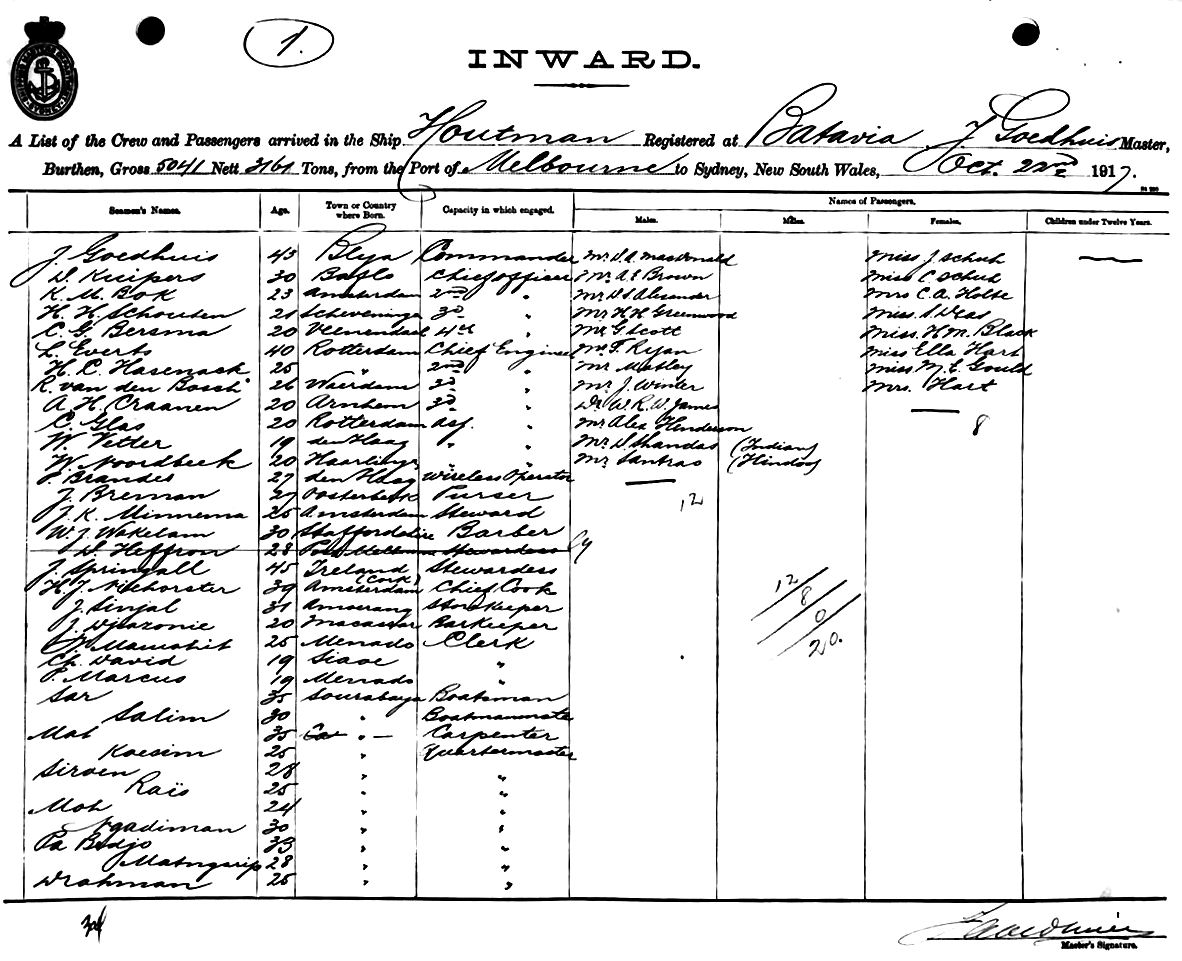 1.
INWARD.
A List of the Crew and Passengers arrived in the Ship Houtman Registered at Batavia J Goedhuis Master,
Burthen, Gross 5041 Nett 3161 Tons, from the Port of Melbourne to Sydney, New South Wales, Oct. 22nd 1917.
Seamen's Names. Age. Town or Country where Born. Capacity in which engaged. Names of Passengers.
Males. Males. Females. Children under Twelve Years.
J. Goedhuis 43 Commander Mr. D. A. MacDonald Miss J. Schuh —
D. Kuipers 30 Chief officier Mr. A. E. Brown Miss C Schuh
K. M. Bok 23 Amsterdam 2nd " Mr D S Alexander Mrs C. A. Holte
H. H. Schouten 21 Scheveninge 3d " Mr H H Greenwood Miss
C. G. Bersma 20 4th " Mr G Scott Miss. H. M. Black
L. Everts 40 Rotterdam Chief Engineer Mr. T. Ryan Miss Ella Hart
H. C. Hasenack 25 " 2nd " Mr Miss M. E Gould
R. van den Bosch 26 Woerdam 3d " Mr J. Winter Mrs. Hart
A. H. Craanen 20 Arnhem 3d " Dr W. R. W. James —
C. Glas 20 Rotterdam " Mr Alex Henderson 8
W. Vetter 19 den Haag " " Mr. D. Shandas (Indian)
W. Noordbeek 20 " " Mr Santrao (Hindoo)
P. Brandes 27 den Haag Wireless Operator —
J. Breman 27 Oosterbeek Purser 12
J. K. Minnema 25 Amsterdam Steward
W. J. Wakelam 30 Staffordshire Barber
D. Heffron 28 Port Melbourne Stewardess
J. Springall 45 Ireland (Cork) Stewardess
H. J. 39 Amsterdam Chief Cook 12
J. Sinjal 31 Amoerang Storekeeper 8
J. 20 Macassar Barkeeper 0
J. 25 Menado Clerk 20.
Ch. David 19 Siaoe "
P. Marcus 19 Menado "
Sar 35 Sourabaya Boatsman
Salim 30 " Boatmanmate
Mat 35 — " — Carpenter
Kaesim 25 " Quartermaster
Siroen 28 " "
Raïs 25 " "
Moh 24 " "
Ngadiman 30 " "
Pa Bedjo 33 " "
Matngarip 28 " "
Drahman 25 " "
34
J Goedhuis
Master's Signature.